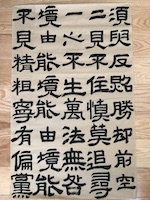 須臾反照勝却前空
二見不住慎莫追尋
一心不生萬法無咎
境由能境能由境能
不見精粗寧有偏黨